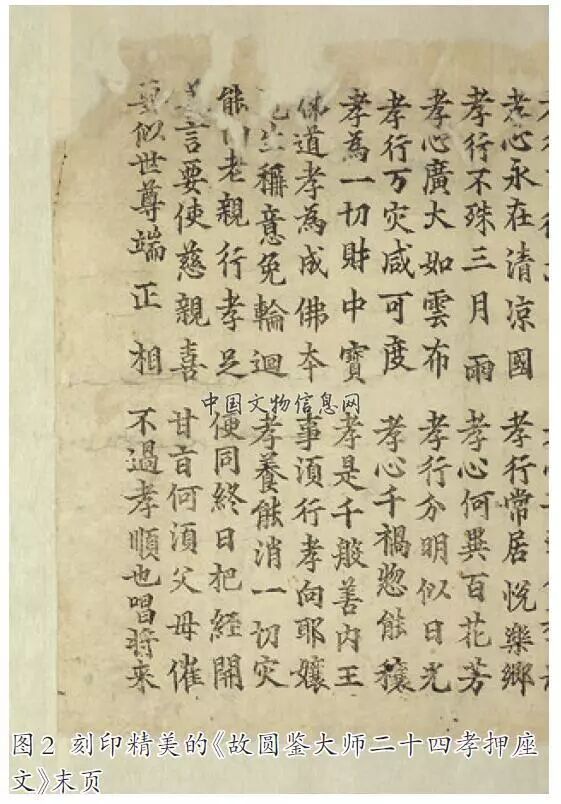 孝心永在清凉國 孝行常居悦樂鄉
孝行不殊三月雨 孝心何異百花芳
孝心廣大如雲布 孝行分明似日光
孝行万灾咸可度 孝心千禍惣能穰
孝為一切財中寶 孝是千般善内王
佛道孝為成佛夲 事湏行孝向耶孃
生稱意免輪迴 孝養能消一切灾
能 老親行孝足 便同終日把經開
言要使慈親喜 甘旨何湏父母催
似世尊端正相 不過孝順也唱将来
中国文物信息网
图2 刻印精美的《故圆鉴大师二十四孝押座
文》末页